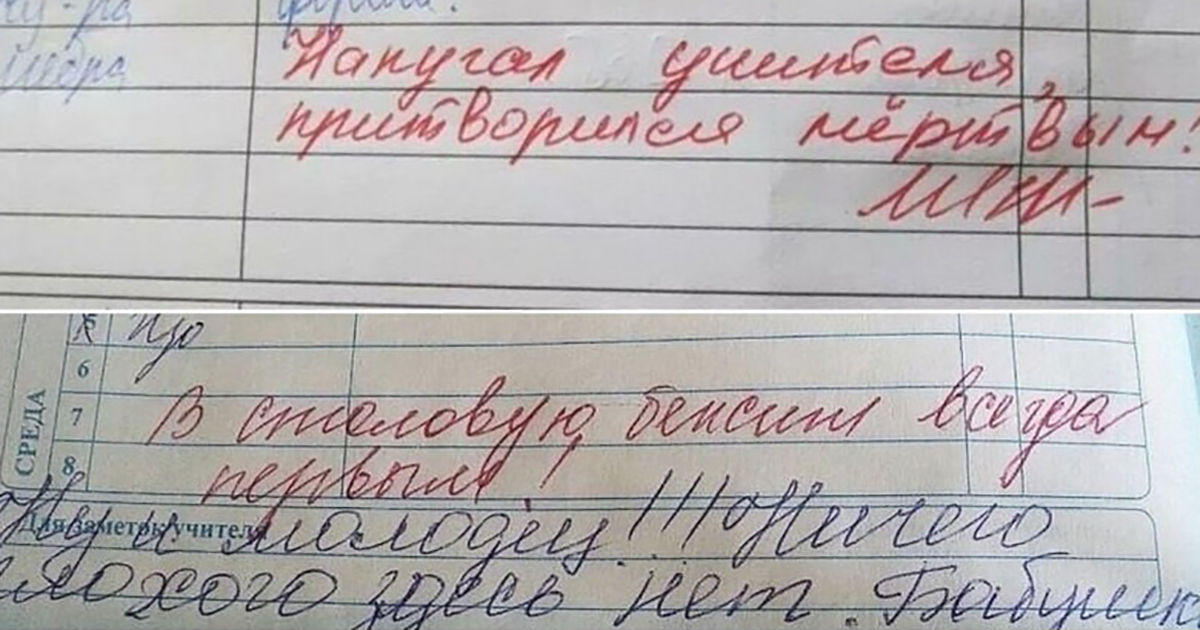 Напугал учителя,
притворился мёртвым!
6
В столовую бежит всегда
7
первым!
8
СРЕДА
Для заметок учителя
Ну и молодец!!! Ничего
плохого здесь нет. Бабушка